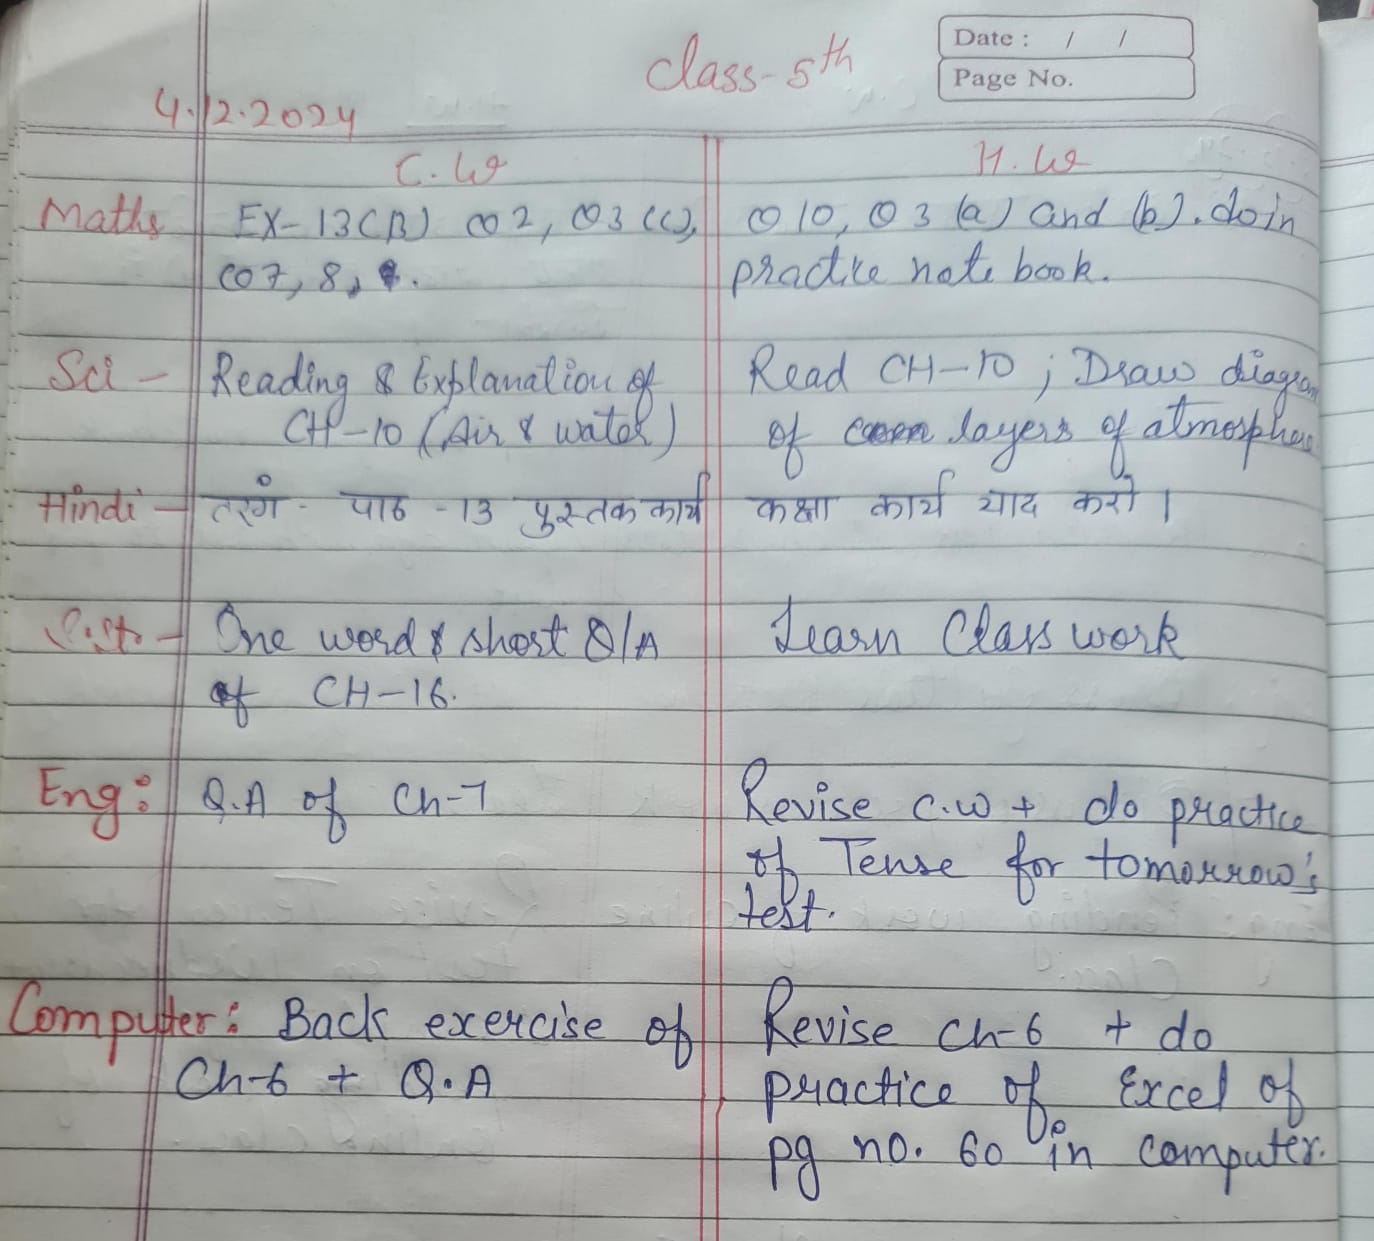 Date : / /
Page No.
Class-5th
4.12.2024
C.W
H.W
Maths
EX-13(B) Q2, Q3 (c),
Q7, 8,
Q 10, Q 3 (a) and (b). do in
practice note book.
Sci -
Reading & Explanation of
CH-10 (Air & water)
Read CH-10 ; Draw diagram
of layers of atmosphere
Hindi -
तरंग - पाठ -13 पुस्तक कार्य
कक्षा कार्य याद करो ।
S.St. -
One word & short Q/A
of CH-16.
Learn Class work
Eng:
Q.A of Ch-7
Revise c.w + do practice
of Tense for tomorrow's
test.
Computer: Back exercise of
Ch-6 + Q.A
Revise Ch-6 + do
practice of Excel of
pg no. 60 in computer.